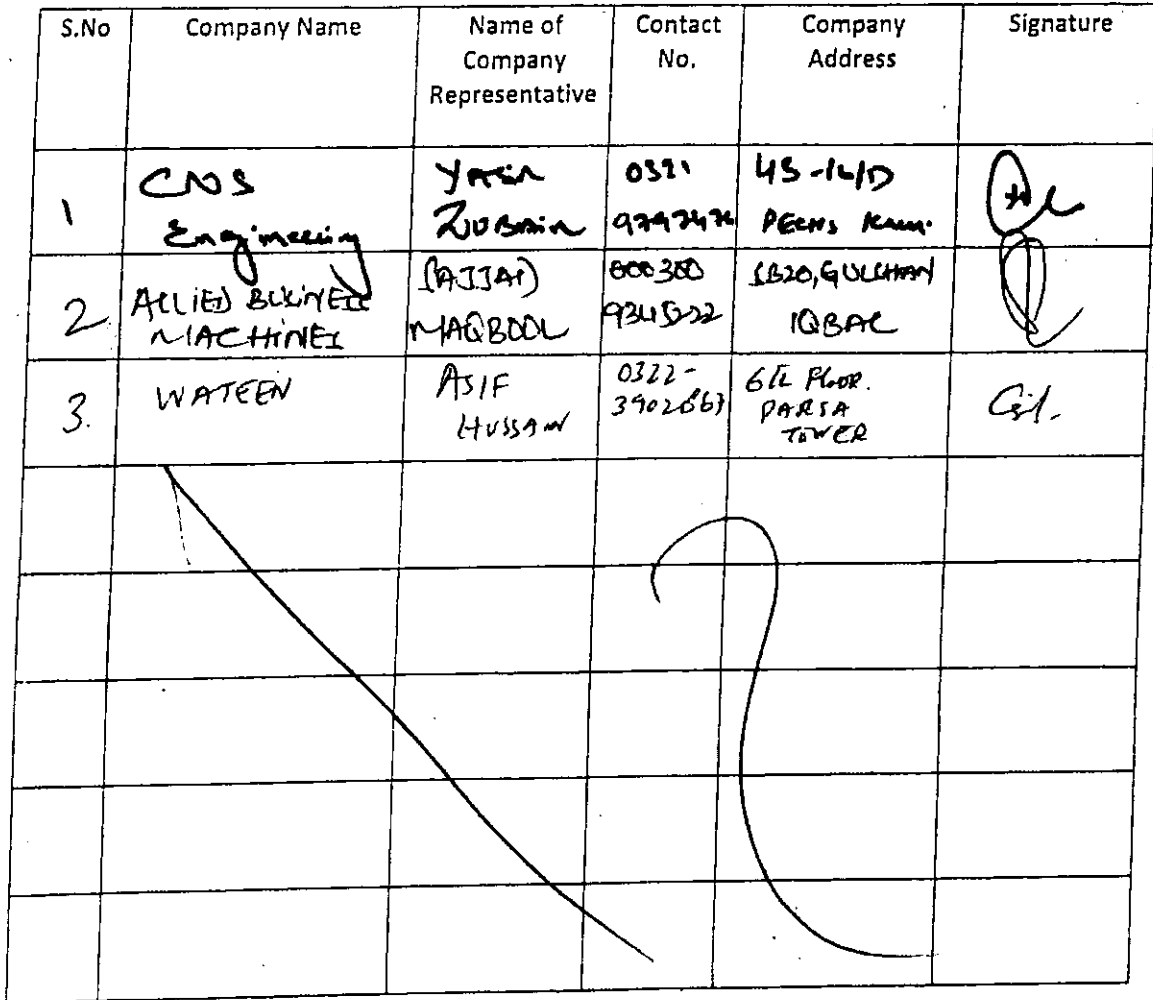 S.No Company Name Name of Company Representative Contact No. Company Address Signature
1 CNS Engineering Yasir Zubair 0321 45-16/D PECHS
2 ALLIED BUSINESS MACHINES SAJJAD MAQBOOL 9345222 SB20, GULSHAN IQBAL
3. WATEEN ASIF HUSSAIN 0322- 6th Floor. PARSA TOWER